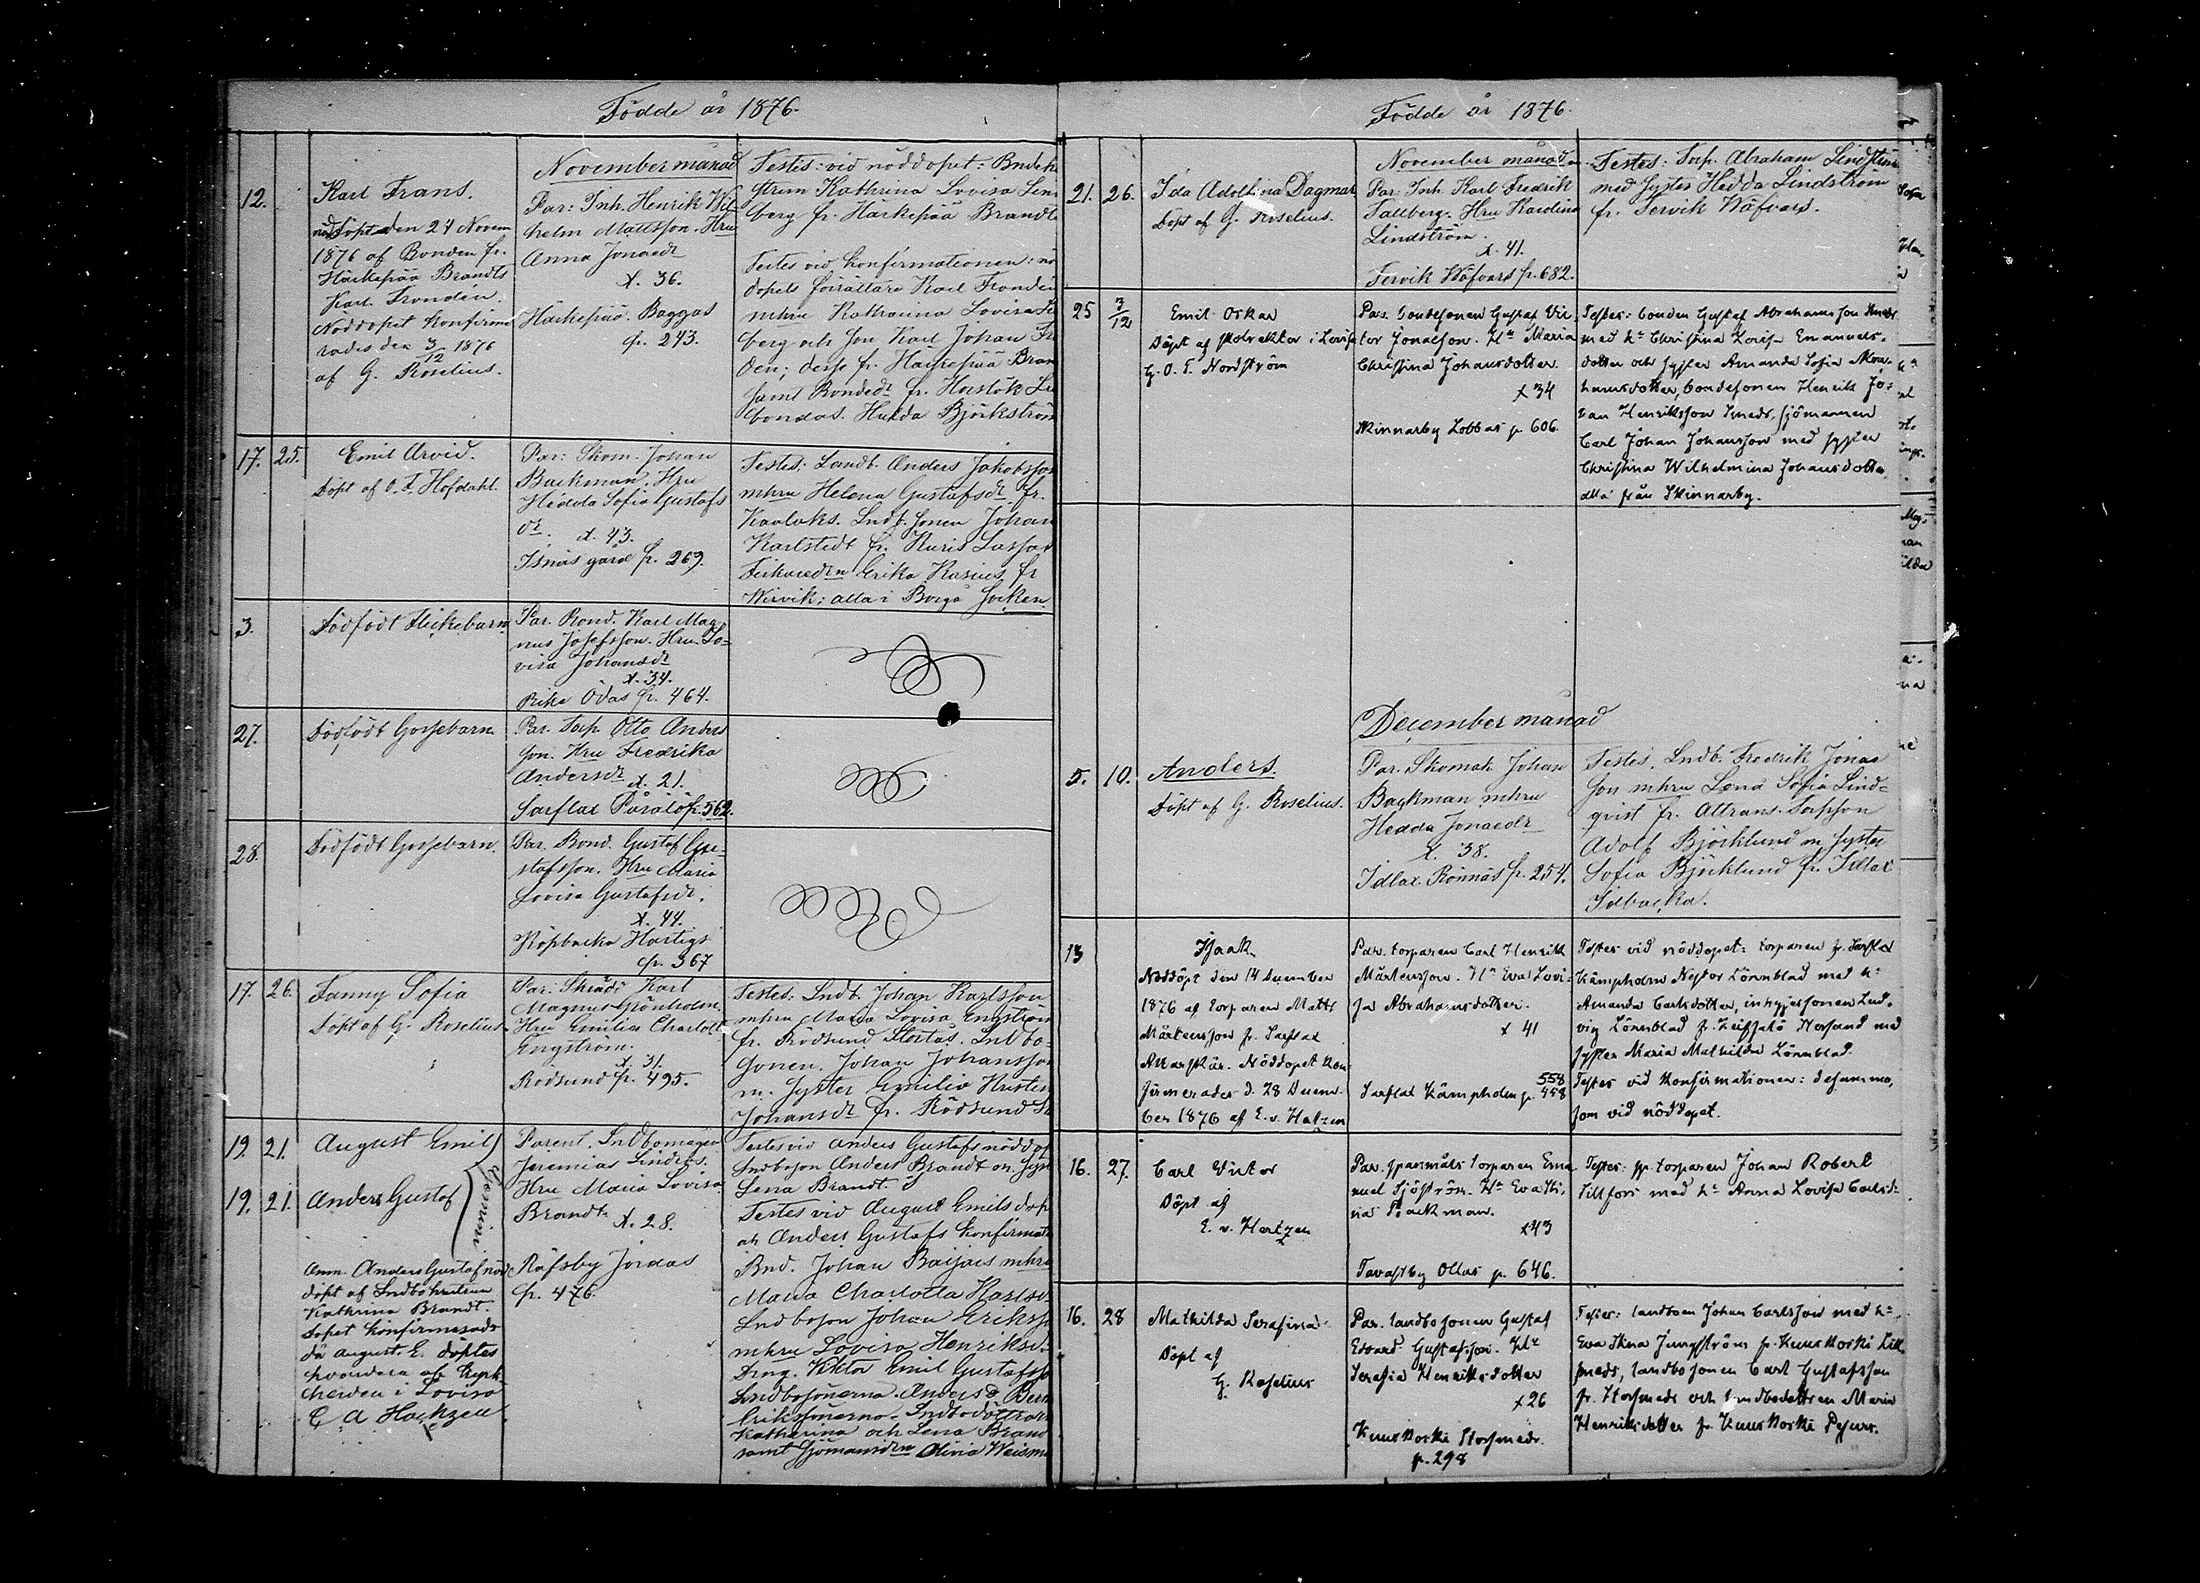 Födde år 1876.
November månad
12.
Karl Frans.
nöddöpt den 24 Novem
1876 af Bonden fr.
Härkepää Brandts
Karl Frondén.
Nöddopet konfirme
rades den 3/12 1876
af G. Roselius.
Par: Inh. Henrik Wil
helm Mattsson. Hru
Anna Jonaedr
x. 36.
Härkepää Baggas
p. 243.
Testes: vid nöddopet: Bndeh
strun Kathrina Lovisa
berg fr. Härkepää Brandts
Testes vid konfirmationen: nö
dopets förrättare Karl Frondén
mhru Katharina Lovisa
berg och son Karl Johan
den; desse fr. Härkepää Bran
samt Bondedr fr.
bondas. Hulda Björkström
17. 25.
Emil Arvid.
Döpt af O. F. Hofdahl.
Par: Skom. Johan
Backman. Hru
Hedda Sofia Gustafs
dr. x. 43.
Isnäs gård p. 269.
Testes: Landb. Anders Jakobsson
mhru Helena Gustafsdr. fr.
Landb. sonen Johan
Karlstedt fr. Kuris Lassas
Erika fr
Wirvik; alla i Borgå Socken.
3.
Dödfödt Flickebarn.
Par. Bond. Karl Mag
nus Josefsson. Hru Lo-
visa Johansdr
x. 34.
Pirke Ödas p. 464.
27.
Dödfödt Gossebarn.
Par. Torp. Otto Anders
son. Hru Fredrika
Andersdr x. 21.
Sarflax p. 562.
28.
Dödfödt Gossebarn.
Par. Bond. Gustaf Gu-
stafsson. Hru Maria
Lovisa Gustafsdr.
x. 44.
Köpbacka Hartigs
p. 367
17. 26.
Fanny Sofia
Döpt af G. Roselius
Par: Skräddr Karl
Magnus Grönholm.
Hru Emilia Charlott
Engström.
x. 31.
Rödsund p. 495.
Testes: Lndb. Johan Karlsson
mhru Maria Lovisa Engström
fr. Rödsund Lndbo-
sonen. Johan Johansson
m. syster Emilia
Johansdr fr. Rödsund
19. 21.
August Emil
19. 21.
Anders Gustaf
Anm. Anders Gustaf nöd
döpt af Lndbohustrun
Kathrina Brandt.
Dopet konfirmerades
då August E. döptes
hvardera af Kyrk
herden i Lovisa
E A
Parent. Lndbomågen
Jeremias Lindroos.
Hru Maria Lovisa
Brandt. x. 28.
Räfsby Jordas
p. 476.
Testes vid Anders Gustafs nöddop
Lndboson Anders Brandt m. syst
Lena Brandt.
Testes vid August Emils dop
och Anders Gustafs konfirmat
Bnd. Johan Baijars mhru
Maria Charlotta
Lndboson Johan Eriksso
mhru Lovisa Henriksd.
Dreng. Viktor Emil Gustafsso
Lndbosönerna. Anders &
Erikssönerna. Lndbodöttrarna
Katharina och Lena Brand
samt Sjömansdrn Olivia
Födde år 1876.
November månad
21. 26.
Ida Adolfina Dagmar
Döpt af G. Roselius.
Par. Inh. Karl Fredrik
Tallberg. Hru Karolina
Lindström.
x. 41.
Tervik Wäfvars p. 682.
Testes. Torp. Abraham Lindström
med syster Hedda Lindström
fr. Tervik Wäfvars.
25 3/12
Emil Oskar
Döpt af skolrektor i Lovisa
G. O. E. Nordström
Par. bondesonen Gustaf Vic
tor Jonasson. Hu Maria
Christina Johansdotter
x 34
Skinnarby Lobbas p. 606
Testes: bonden Gustaf Abrahamsson Smeds
med hu Christina Lovisa Emanuels-
dotter och syster Amanda Sofia Abra-
hamsdotter, bondesonen Henrik Jo-
han Henriksson Smeds, sjömannen
Carl Johan Johansson med syster
Christina Wilhelmina Johansdotter,
alla från Skinnarby.
December månad
5. 10.
Anders.
Döpt af G. Roselius.
Par. Skomak Johan
Backman mhru
Hedda Jonaedr
x. 38.
Idlax Rönnäs p. 254.
Testes. Lndb. Fredrik Jonas
son mhru Lena Sofia Lind-
qvist fr. Torpson
Adolf Björklund m. syster
Sofia Björklund fr. Idlax
Idbacka.
13
Isaak
Nöddöpt den 14 December
1876 af torparen Matts
Mårtensson fr. Sarflax
Nöddopet kon
firmerades d. 28 Decem-
ber 1876 af E. v. Hertzen
Par. torparen Carl Henrik
Mårtensson. Hu Eva Lovi-
sa Abrahamsdotter.
x 41
558
Sarflax Kämpholm p. 558
Testes vid nöddopet: torparen fr. Sarflax
Kämpholm Nestor Lönnblad med hu
Amanda Carlsdotter, inhysessonen Lud-
vig Lönnblad fr. med
syster Maria Mathilda Lönnblad.
Testes vid konfirmationen: desamma,
som vid nöddopet.
16. 27.
Carl Victor
Döpt af
E. v. Hertzen
Par. spanmåls torparen Ema
nuel Sjöström. Hu Eva Sti-
na Backman.
x 43
Tavastby Ollas p. 646.
Testes: sp. torparen Johan Robert
Tillfors med hu Anna Lovisa Carlsdr
16. 28
Mathilda Serafina
Döpt af
G. Roselius
Par. landbosonen Gustaf
Edvard Gustafsson. Hu
Serafia Henriksdotter
x 26
Kuuskoski Storsmeds.
p. 298
Testes: landboen Johan Carlsson med hu
Eva Stina Ljungström fr. Kuuskoski Lill
smeds, landbosonen Carl Gustafsson
fr. Storsmeds och landbodottren Maria
Henriksdotter fr. Kuuskoski